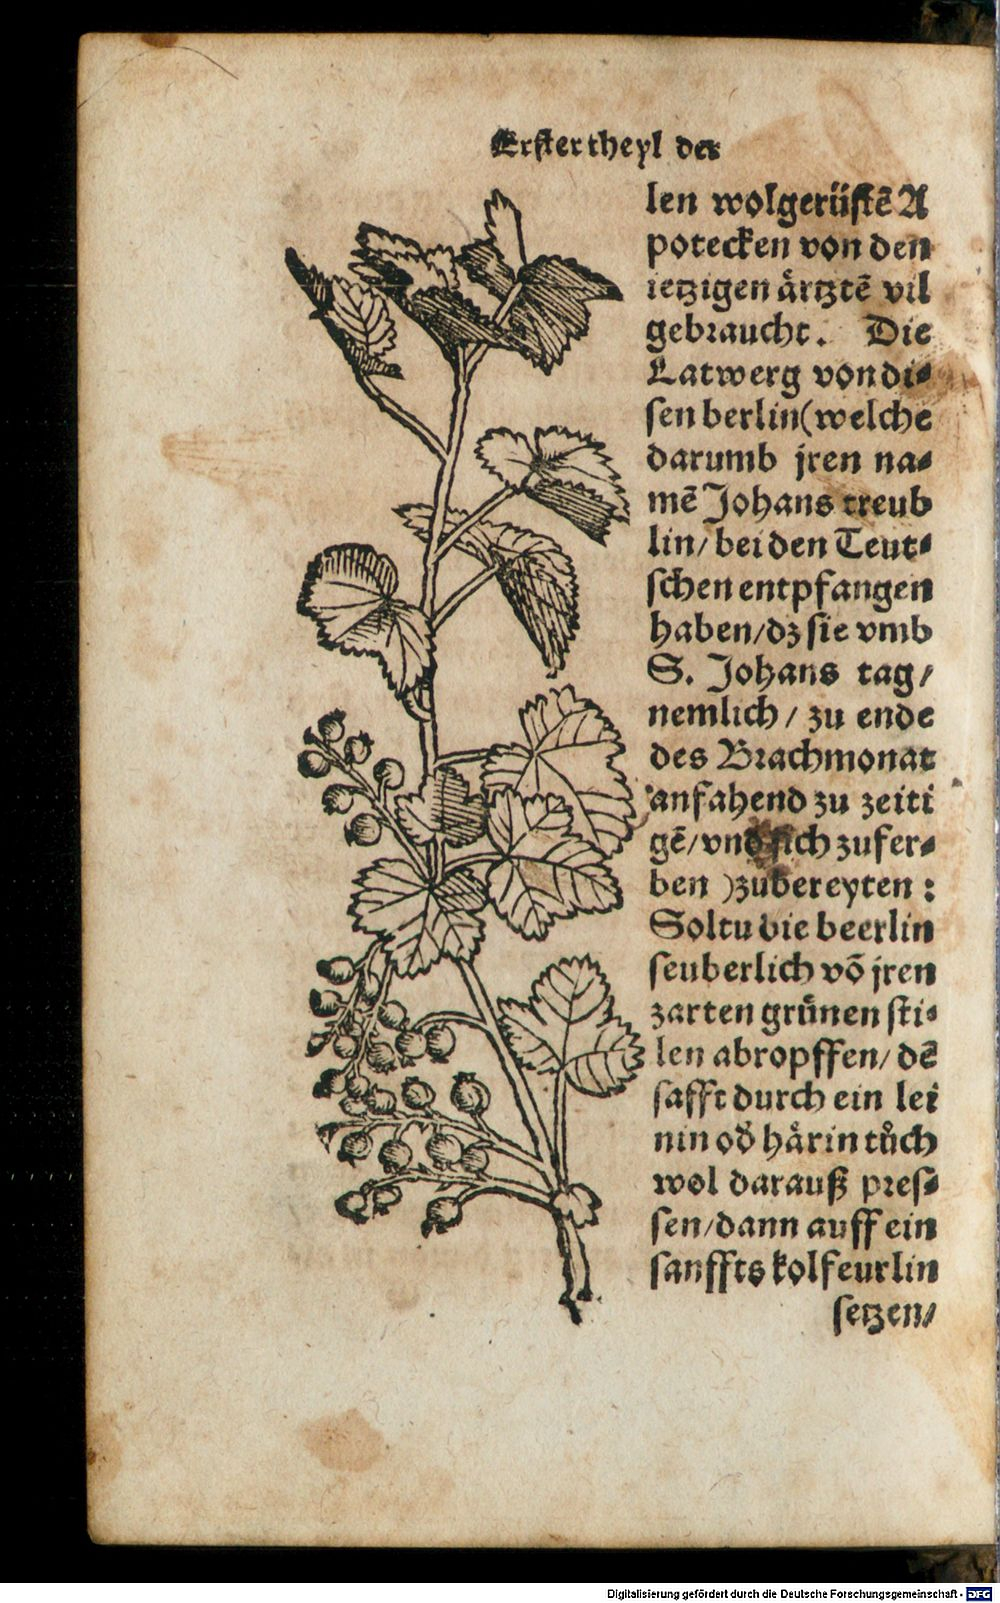 Erster theyl der
len wolgerüstẽ A
potecken von den
ietzigen ärtztẽ vil
gebraucht. Die
Latwerg von di⸗
sen berlin (welche
darumb jren na⸗
mẽ Johans treub
lin/ bei den Teut⸗
schen entpfangen
haben/ dz sie vmb
S. Johans tag/
nemlich/ zu ende
des Brachmonat
anfahend zu zeiti
gẽ/ vnd sich zufer⸗
ben) zubereyten:
Soltu die beerlin
seuberlich võ jren
zarten grünen sti⸗
len abropffen/ dẽ
safft durch ein lei
nin od̕ härin tůch
wol darauß pres⸗
sen/ dann auff ein
sanffts kolfeurlin
setzen/
Digitalisierung gefördert durch die Deutsche Forschungsgemeinschaft - DFG